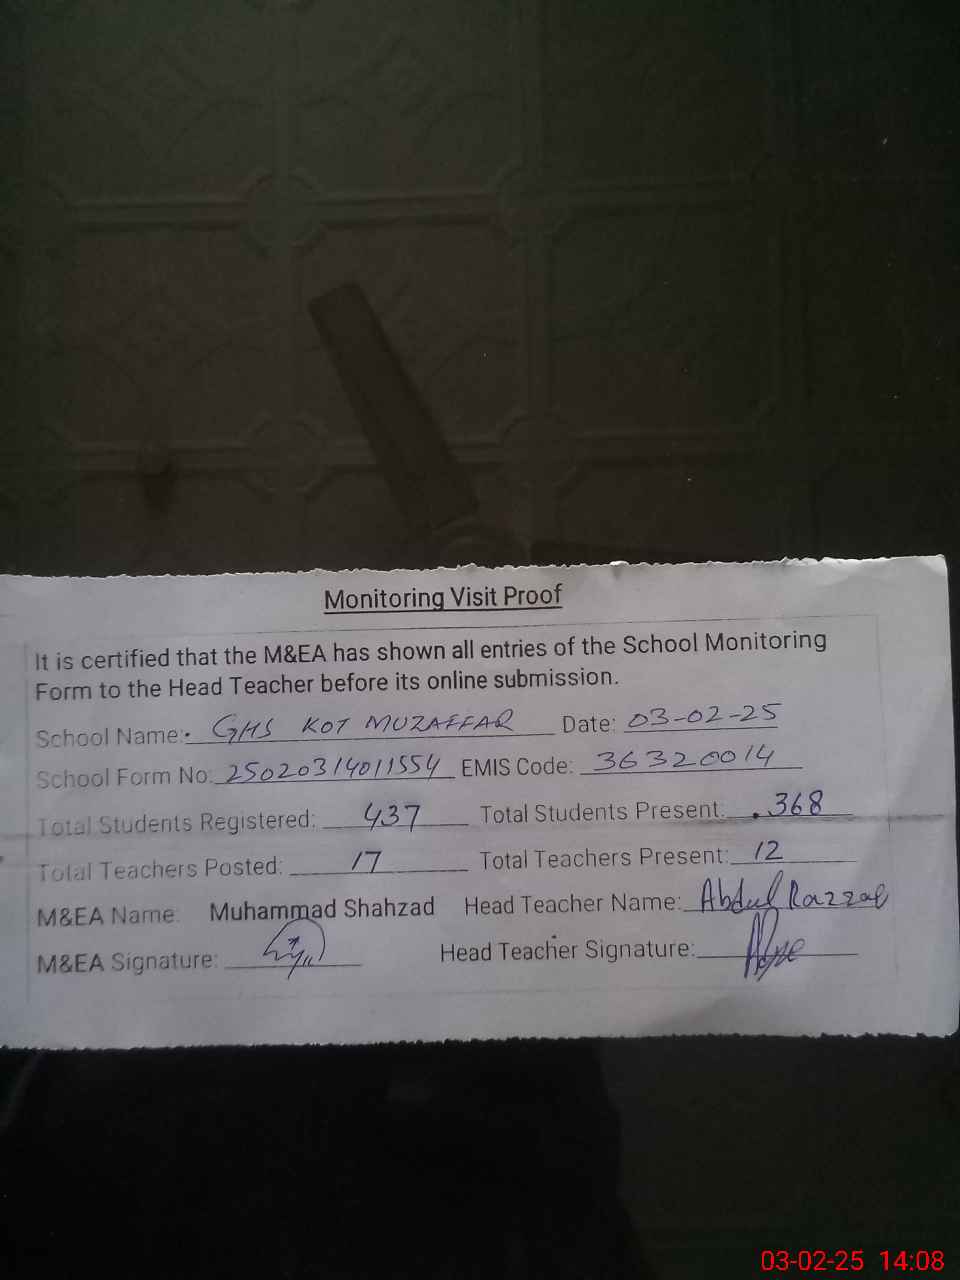 Monitoring Visit Proof
It is certified that the M&EA has shown all entries of the School Monitoring
Form to the Head Teacher before its online submission.
School Name: GHS KOT MUZAFFAR Date: 03-02-25
School Form No: 25020314011554 EMIS Code: 36320014
Total Students Registered: 437 Total Students Present: 368
Total Teachers Posted: 17 Total Teachers Present: 12
M&EA Name: Muhammad Shahzad Head Teacher Name: Abdul Razzaq
M&EA Signature: Head Teacher Signature:
03-02-25 14:08